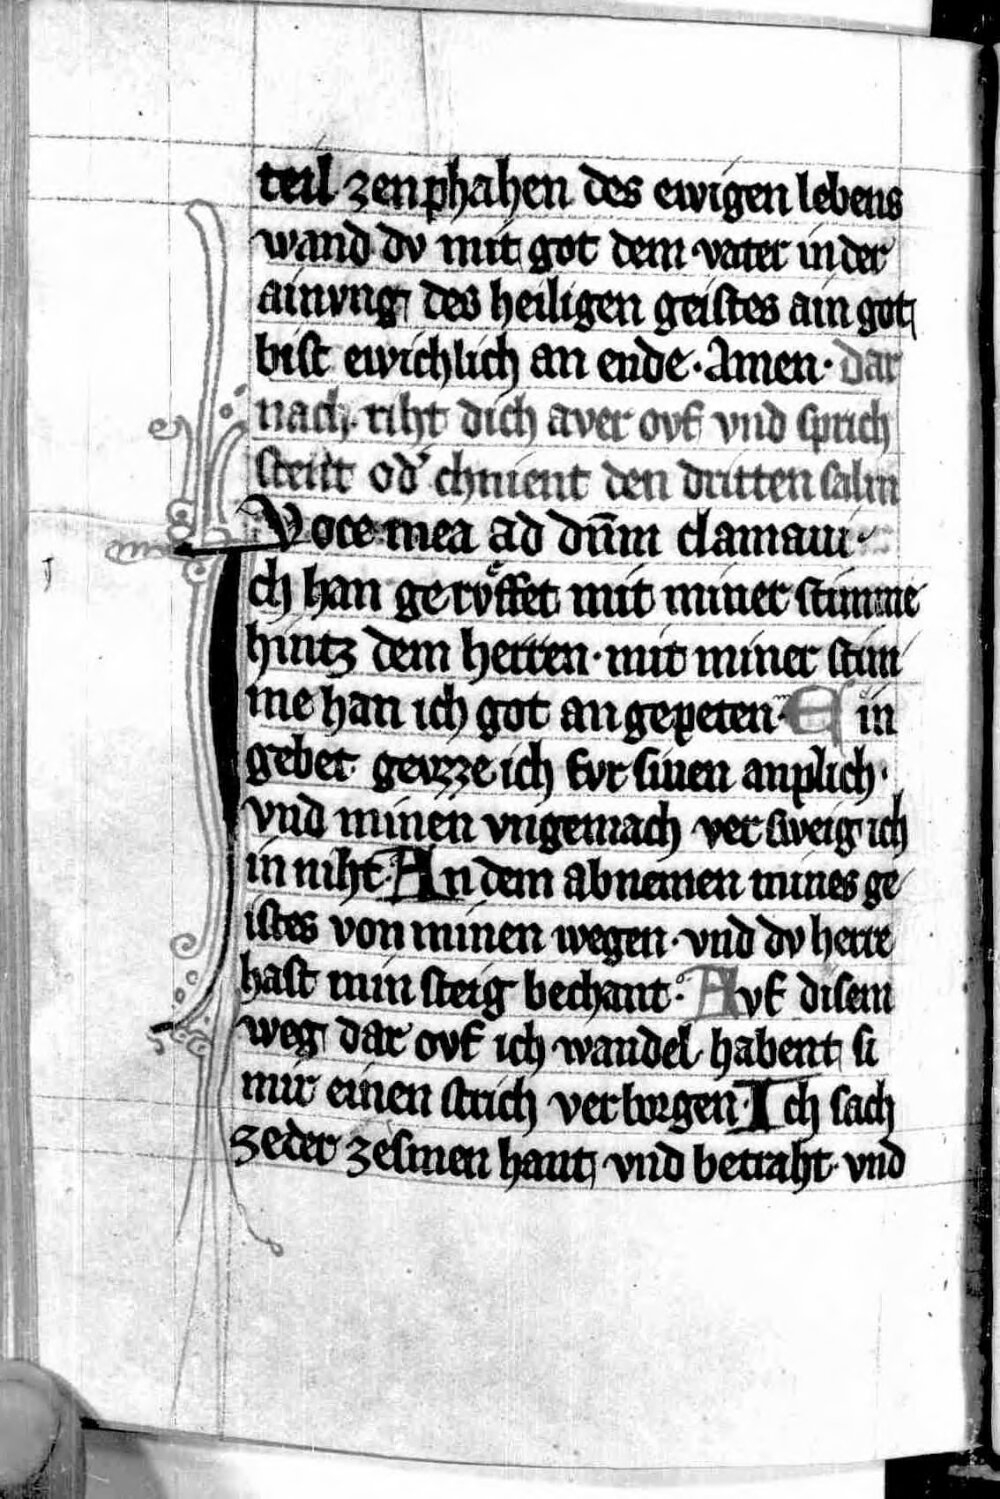 teil zenphahen des ewigen lebens
wand dv mit got dem vater in der
ainvng des heiligen geistes ain got
bist ewichlich an ende · Amen · dar
nach riht dich aver ovf vnd sprich
stent od' chnient den dritten salm
Voce mea ad dn̄m clamaui
Ich han gervͦffet mit miner stimme
hintz dem herren · mit miner stim
me han ich got an gepeten · Ein
gebet gevzze ich fvr sinen anplich ·
vnd minen vngemach ver sweig ich
in niht · An dem abnemen mines ge
istes von minen wegen · vnd dv herre
hast min steig bechant · Avf disem
weg dar ovf ich wandel habent si
mir einen strich verborgen · Ich sach
ze der zesmen hant vnd betraht vnd